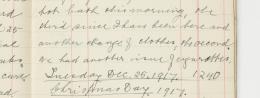 hot bath this morning, the
third since I have been here and
another change of clothes, the second.
we had another issue of cigarettes.
Tuesday Dec. 25, 1917. 1240
Christmas Day, 1917.